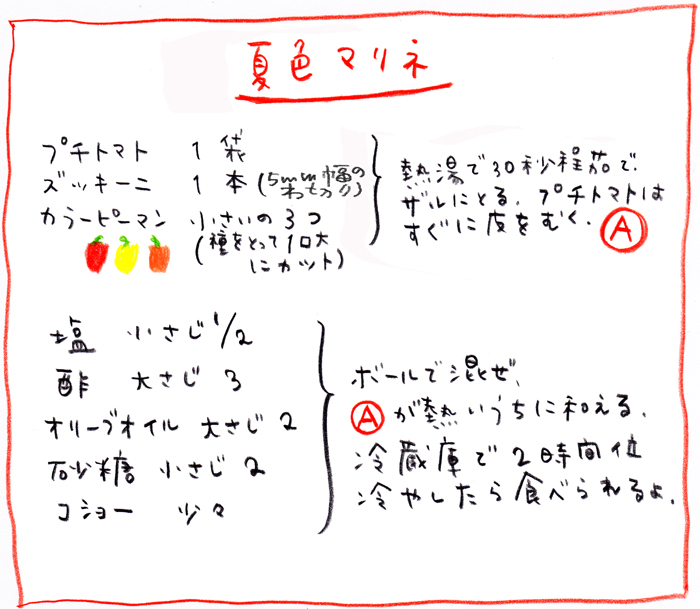 夏色マリネ
プチトマト 1袋
ズッキーニ 1本(5mm幅の
わ切り)
カラーピーマン 小さいの3コ
(種をとって1口大
にカット)
熱湯で30秒程茹で、
ザルにとる。プチトマトは
すぐに皮をむく。 Ⓐ
塩 小さじ1/2
酢 大さじ3
オリーブオイル 大さじ2
砂糖 小さじ2
コショー 少々
ボールで混ぜ、
Ⓐが熱いうちに和える。
冷蔵庫で2時間位
冷やしたら食べられるよ。